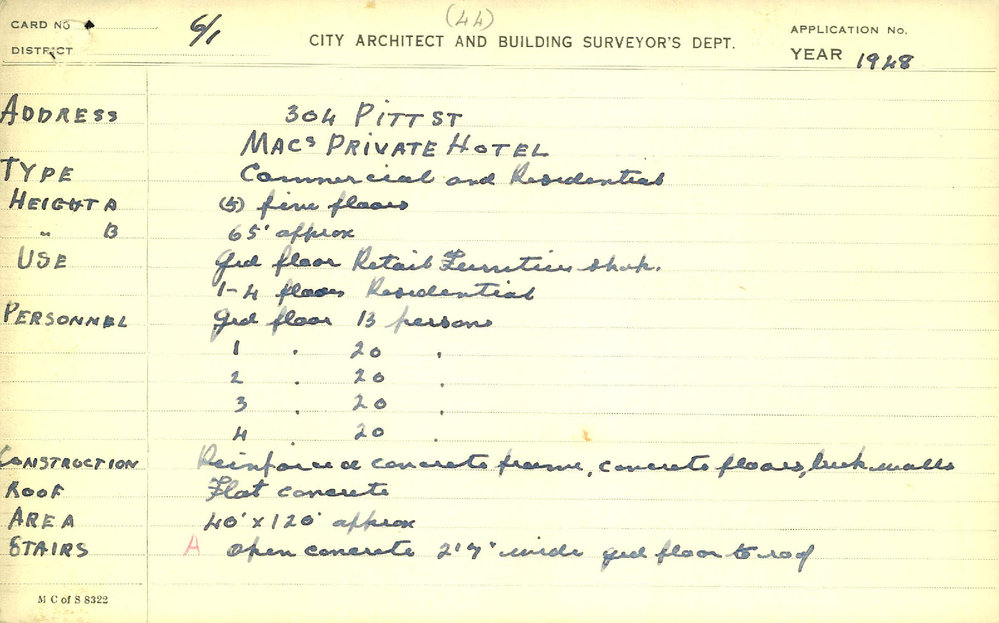 (44)
CARD No 6/1 CITY ARCHITECT AND BUILDING SURVEYOR'S DEPT. APPLICATION No.
DISTRICT YEAR 1948
ADDRESS 304 PITT ST
MACS PRIVATE HOTEL
TYPE Commercial and Residential
HEIGHT A (5) five floors
" B 65' approx
USE Grd floor Retail Furniture shop.
1-4 floors Residential
PERSONNEL Grd floor 13 persons
1 . 20 .
2 . 20 .
3 . 20 .
4 . 20 .
CONSTRUCTION Reinforced concrete frame, concrete floors, brick walls
ROOF Flat concrete
AREA 40' x 120' approx
STAIRS A open concrete 2'9" wide grd floor to roof
M C of S 8322